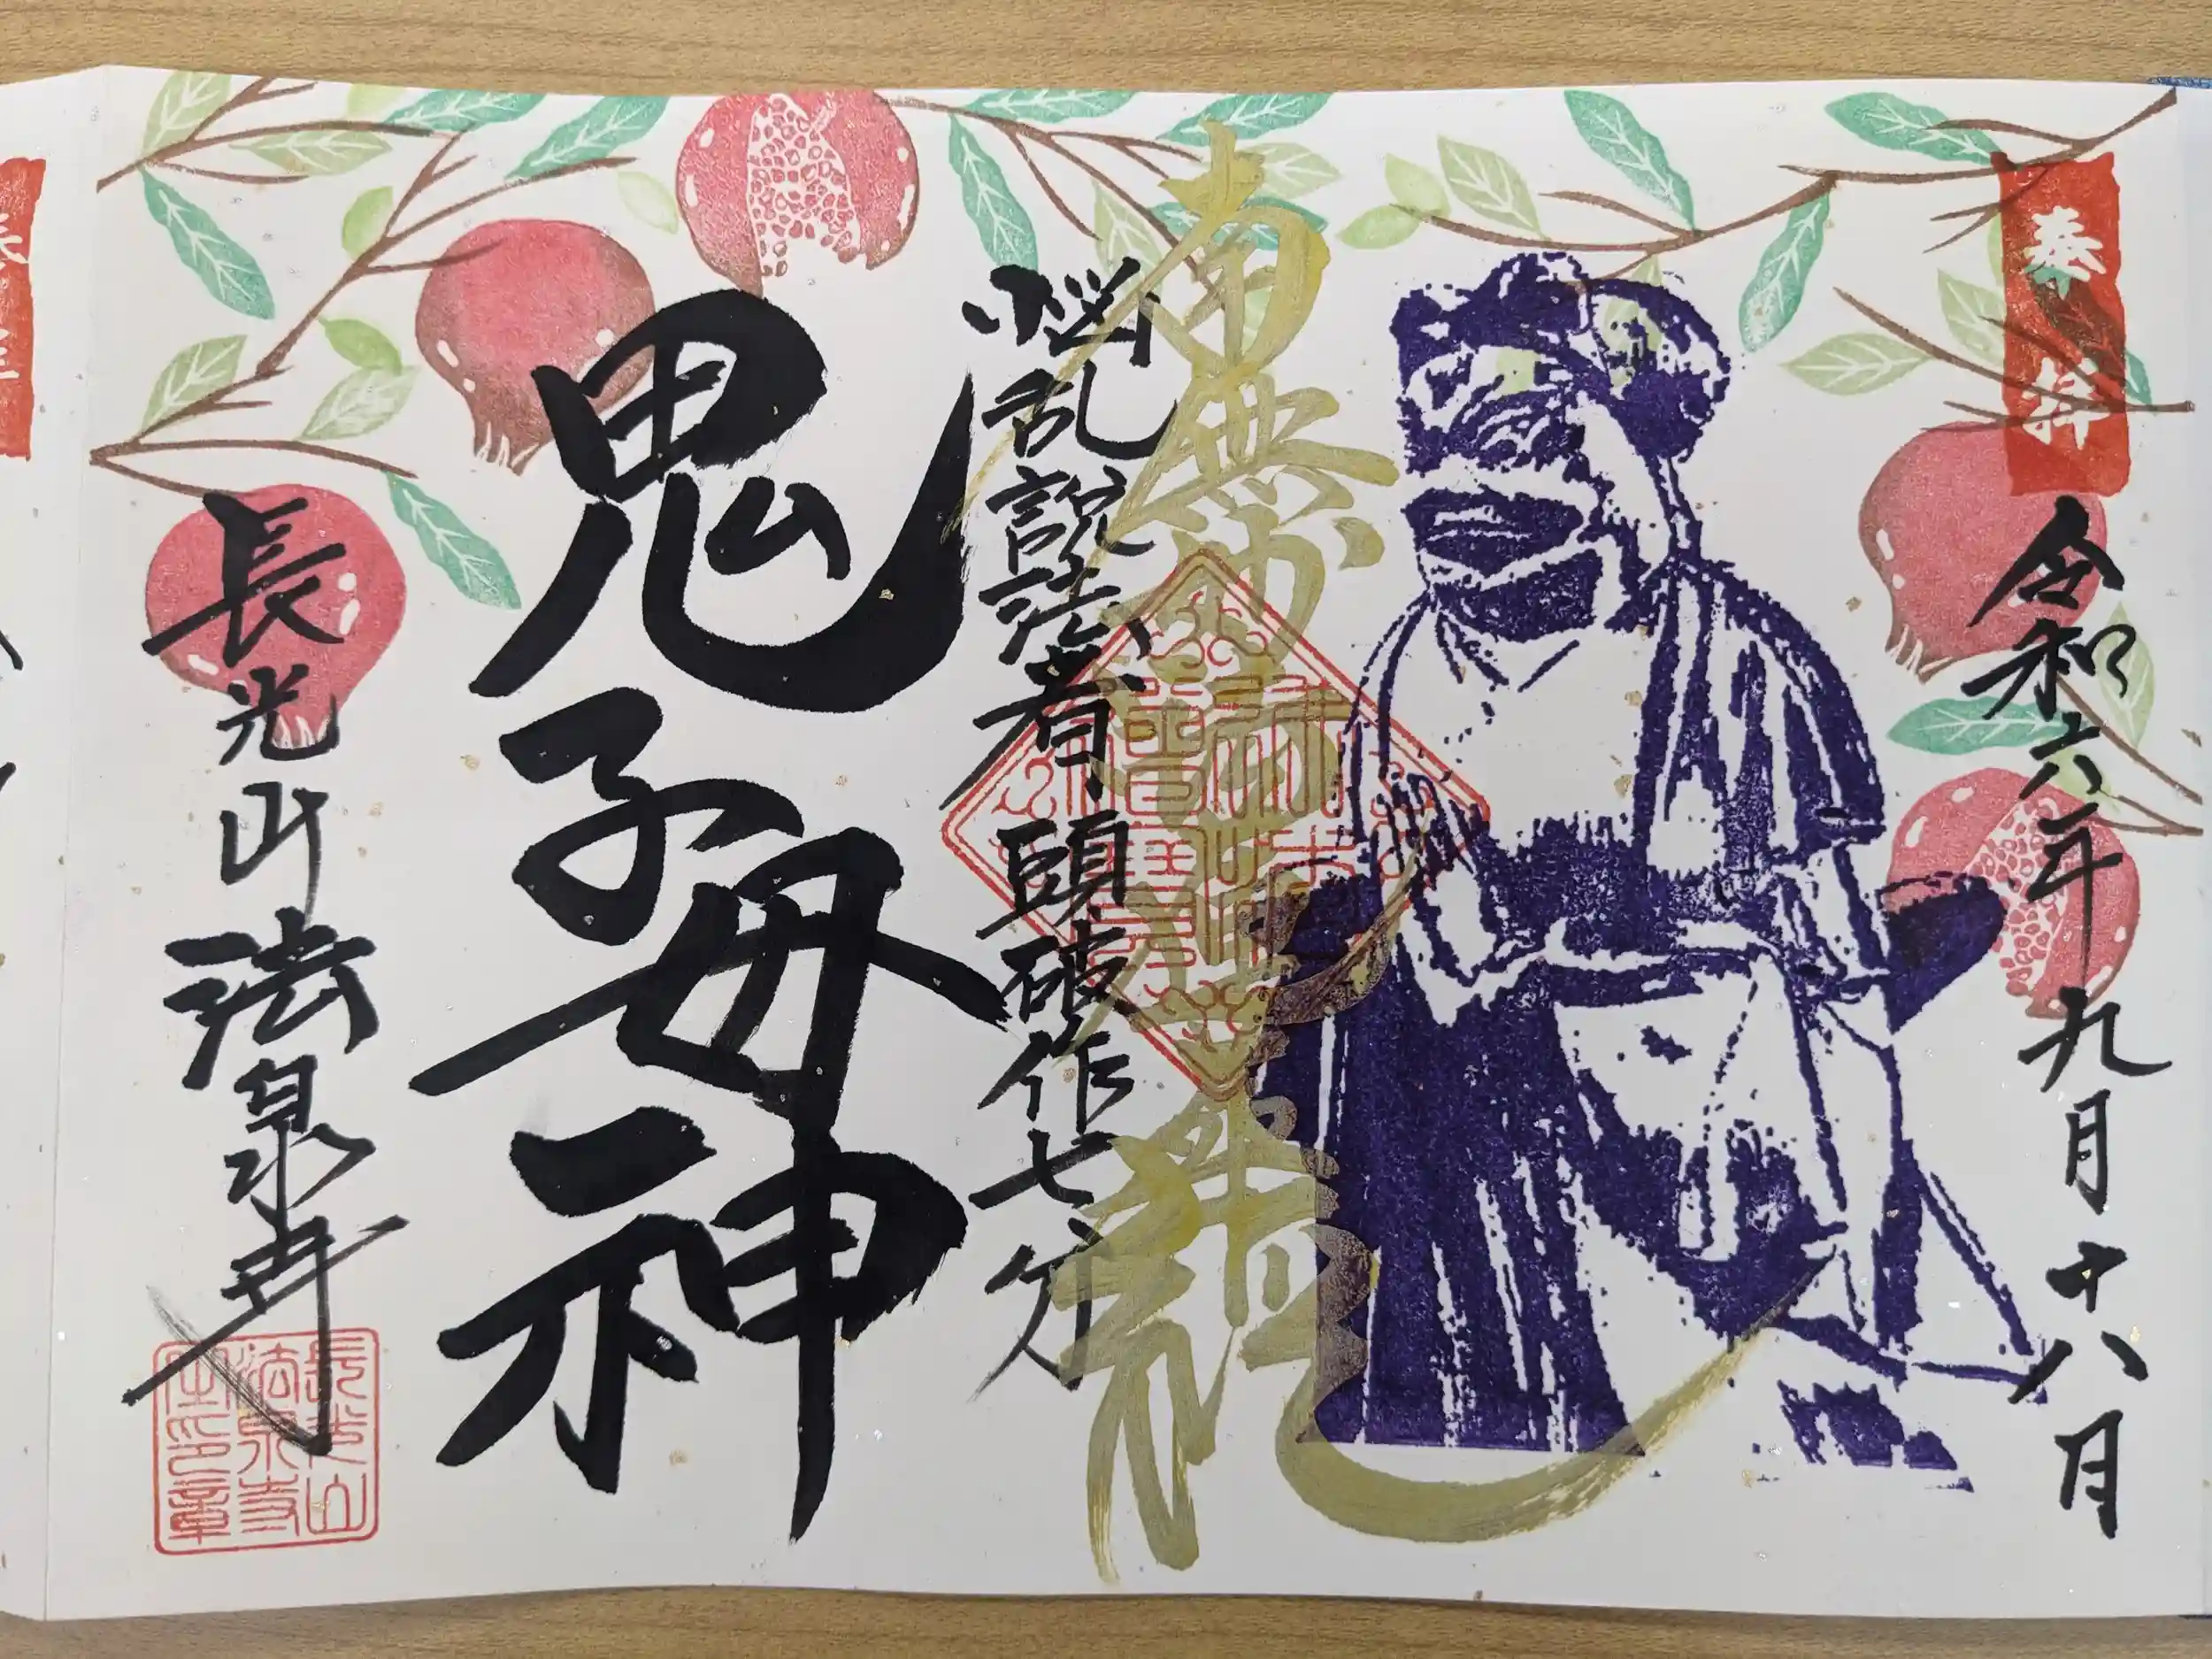 奉拝
令和六年九月十八日
南無
悩乱説法者、頭破作七分
鬼子母神
長光山法泉寺
長光山
法泉寺